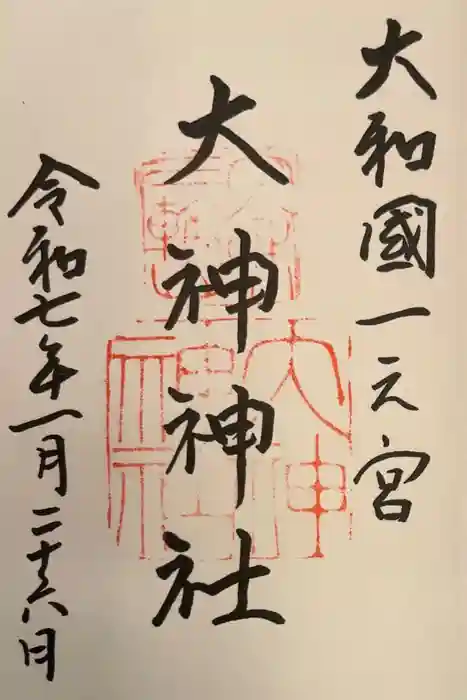 大和國一之宮
大神神社
令和七年一月二十六日
大神神社